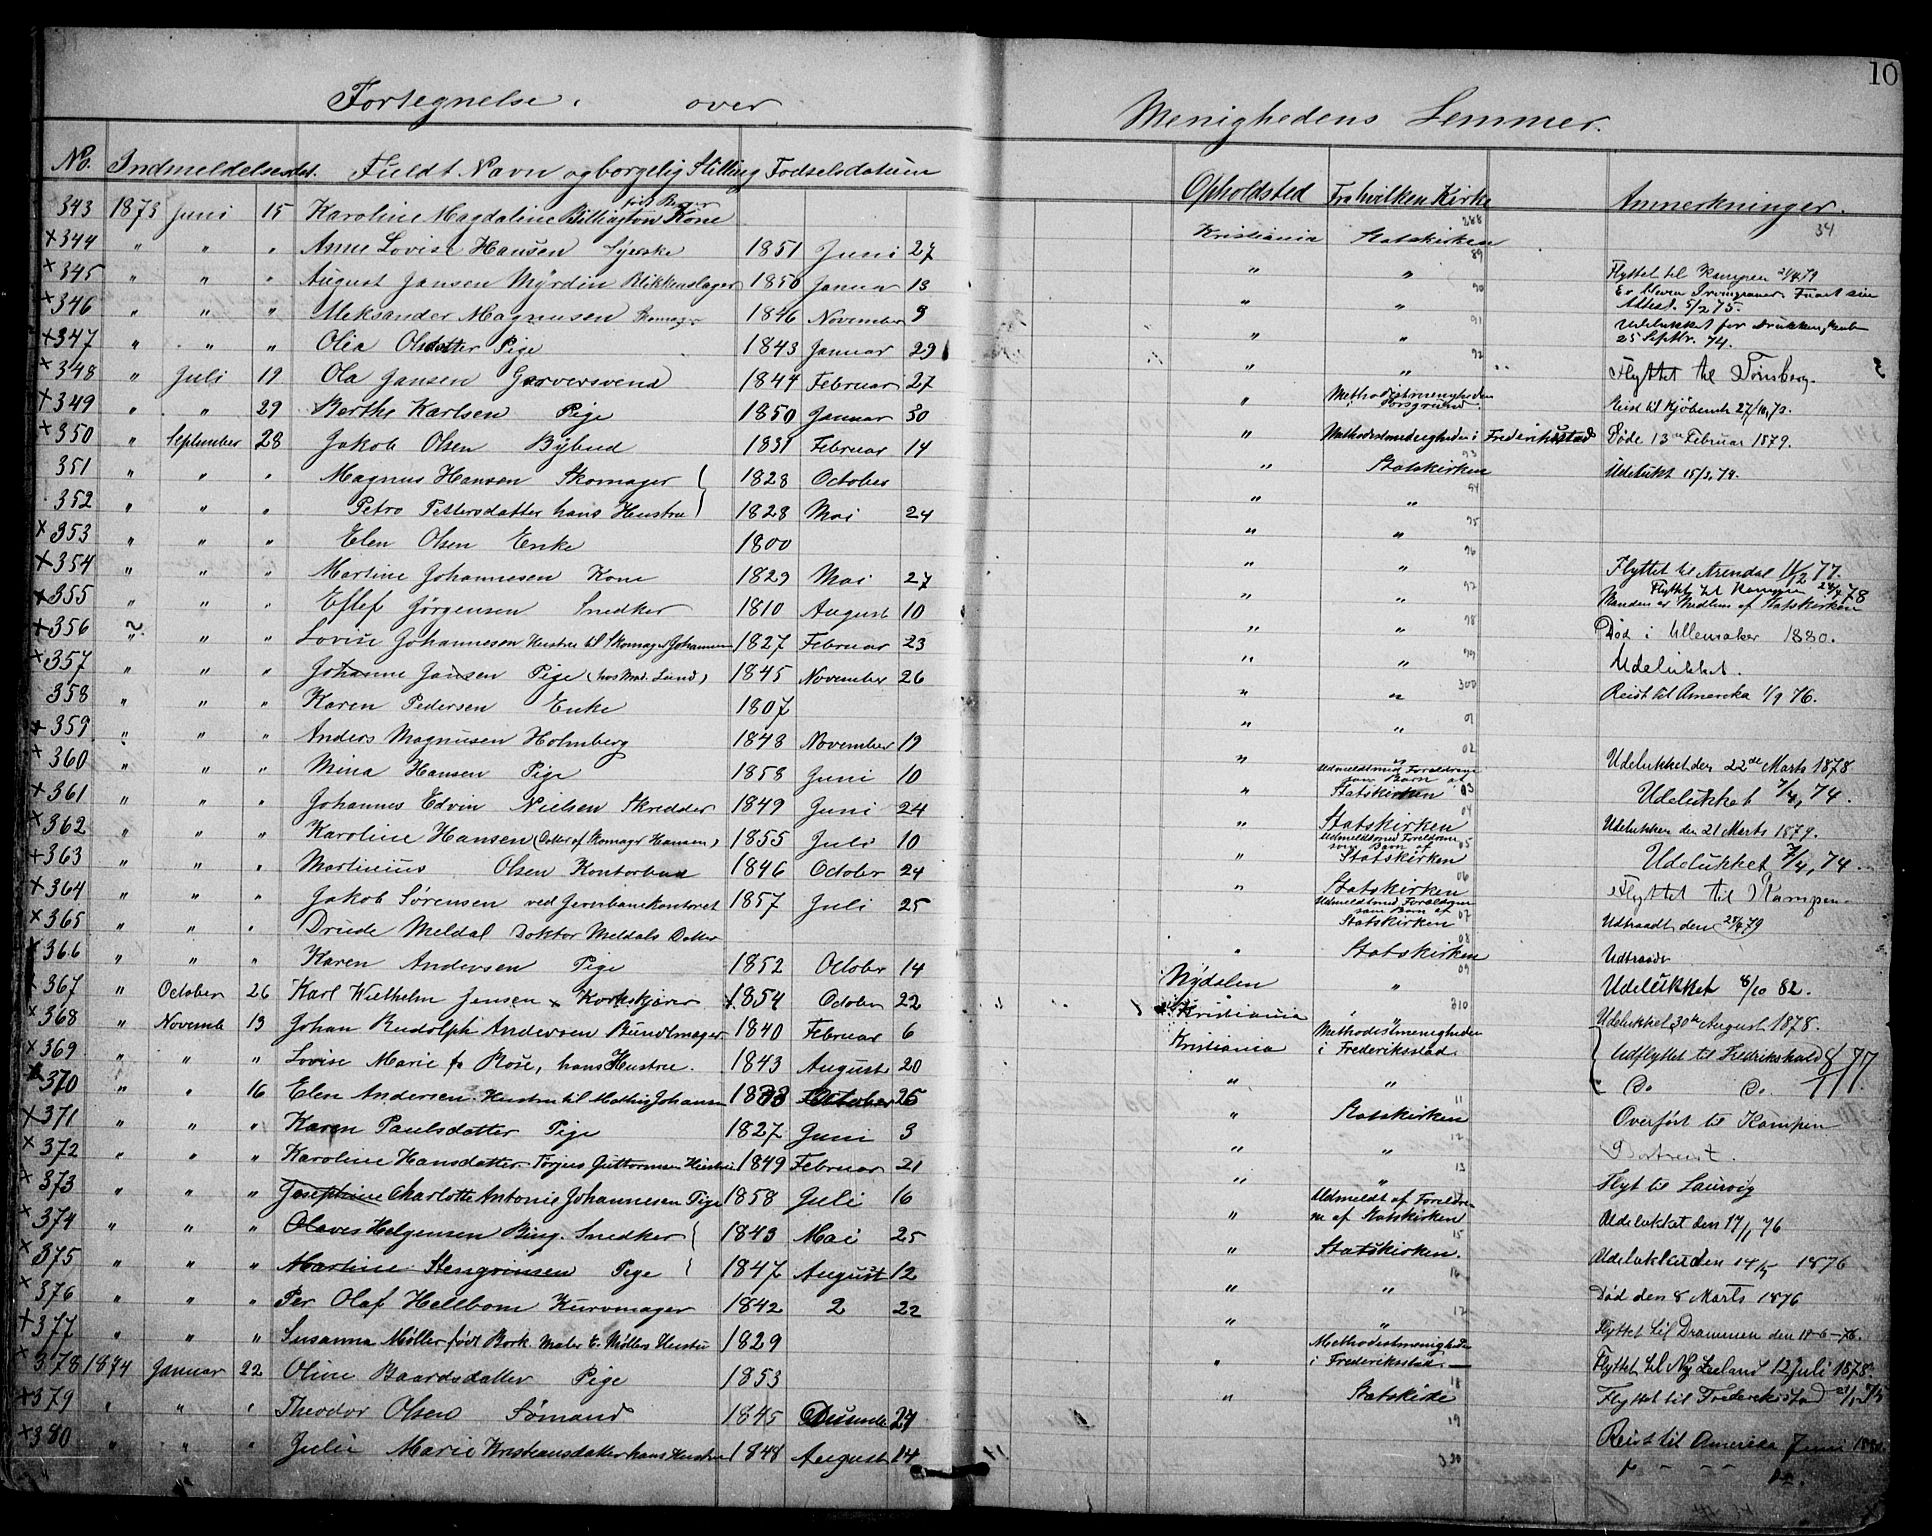 10
Fortegnelse over Menighedens Lemmer.
No. Indmeldelsesdat. Fuldt Navn og borgelig Stilling Fodselsdatum Opholdsted Fra hvilken Kirke Anmerkninger.
343 1873 Juni 15 Karoline Magdaline Billington Kone 288 34
x344 " " " Anne Lovise Hansen Syerske 1851 Juni 27 Kristiania Statskirken 89
x345 " " " August Jansen Myrdin Blikkenslager 1850 Januar 13 " " 90 Flyttet til Kampen
x346 " " " Aleksander Magnusen Skomager 1846 November 9 " " 91 Attest. 5/2 75.
x347 " " " Olia Olsdatter Pige 1843 Januar 29 " " 92 25 Septbr. 74.
x348 " Juli 19 Ola Jansen Garversvend 1844 Februar 27 " " Flyttet til Tønsberg.
x349 " " 29 Berthe Karlsen Pige 1850 Januar 30 " Methodistmenigheden i Porsgrund.
x350 " September 28 Jakob Olsen Bybud 1831 Februar 14 " Methodistmenigheden i Frederiksstad Døde 13de Februar 1879.
351 " " " Magnus Hansen Skomager 1828 October " Statskirken 93 Udelukt 15/3, 74.
352 " " " Petro Pettersdatter hans Hustru 1828 Mai 24 " " 94
x353 " " " Elen Olsen Enke 1800 " " 95
x354 " " " Martine Johannesen Kone 1829 Mai 27 " " 96 Flyttet til Arendal 11/2 77.
x355 " " " Eflef Jørgensen Snedker 1810 August 10 " " 97 Flyttet til Kampen 78
Manden er Medlem af Statskirken
x356 " " " Lovise Johannesen Hustru til Skomager Johannesen 1827 Februar 23 " " 98 Død i Ullensaker 1880.
x357 " " " Johanne Jansen Pige (hos Mad. Lund) 1845 November 26 " " 99 Udelukket.
358 " " " Karen Pedersen Enke 1807 " " 300 Reist til Amerika 1/9 76.
x359 " " " Anders Magnusen Holmberg 1848 November 19 " " 01
x360 " " " Mina Hansen Pige 1858 Juni 10 " Udmeldt med Foreldrene som Barn af Statskirken 02 Udelukket den 22de Marts 1878
x361 " " " Johannes Edvin Nielsen Skredder 1849 Juni 24 " Statskirken 03 Udelukket 7/4, 74.
x362 " " " Karoline Hansen (Datter af Skomager Hansen) 1855 Juli 10 " Udmeldt med Foreldrene som Barn af Statskirken 04 Udelukken den 21 Marts 1879.
x363 " " " Martinius Olsen Kontorbud 1846 October 24 " Statskirken 05 Udelukket 7/4, 74
x364 " " " Jakob Sørensen ved Jernbanekontoret 1857 Juli 25 " Udmeldt med Foreldrene som Barn af Statskirken 06 Flyttet til Kampen
x365 " " " Drude Meldal Doktor Meldals Datter 07 Udtraadt den
x366 " " " Karen Andersen Pige 1852 October 14 " Statskirken 08 Udtraadt
x367 " October 26 Karl Wilhelm Jensen Korkskjærer 1854 October 22 Nydalen " 09 Udelukket 8/10 82.
x368 " Novembe 13 Johan Rudolph Andersen Bundtmager 1840 Februar 6 Kristiania Methodistmenigheden i Frederiksstad 310 Udelukket 30te August 1878.
x369 " " " Lovise Marie f. Rose, hans Hustru. 1843 August 20 Kristiania " Udflyttet til Fredrikshald
370 " " 16 Elen Andersen Hustru til Mathis Johansen 1833 October 25 " " Do Do.
x371 " " " Karen Paulsdatter Pige 1827 Juni 3 " Statskirken 11 Overført til Kampen
x372 " " " Karoline Hansdatter Torjus Guttormsen Hustru 1849 Februar 21 " " 12 Bortreist.
x373 " " " Josephine Charlotte Antonie Johannesen Pige 1858 Juli 16 " " 13 Flyt til Laurvig
x374 " " " Olaves Helgensen Bing. Snedker 1843 Mai 25 " Udmeldt af Foreldrene af Statskirken Udelukket den 17/1 76
x375 " " " Martine Stengrimsen Pige 1847 August 12 " Statskirken. 15 Udelukket den 14/5 1876
x376 " " " Per Olaf Hellbom Kurvmager 1842 2 22 " " 16 Død den 8 Marts 1876
x377 " " " Susanna Møller født Bork. Maler E. Møllers Hustru 1829 " " 17 Flyttet til Drammen den 11-6-76.
x378 1874 Januar 22 Oline Baardsdatter Pige 1853 " Methodistmenigheden i Frederiksstad. Flyttet til Ny Zeeland 12 Juli 1878.
x379 " " " Theodor Olsen Sømand 1845 Desembe 27 " Statskirke 18 Flyttet til Frederiksstad
x380 " " " Julie Marie Kristiansdatter hans Hustru 1848 August 14 19 Reist til Amerika Juni
320